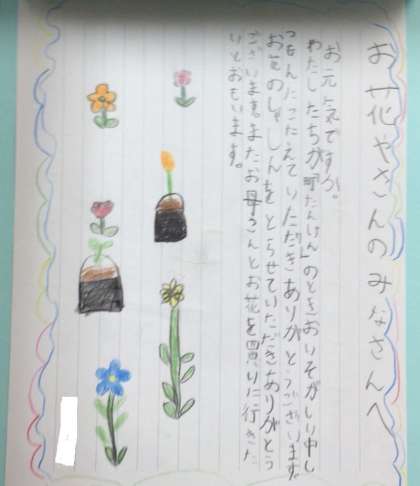 お花やさんのみなさんへ
お元気ですか。
わたしたちが「町たんけん」のときおいそがしい中し
つもんにこたえていただきありがとうございます。
お花のしゃしんをとらせていただきありがとう
ございます。またお母さんとお花を買いに行きた
いとおもいます。